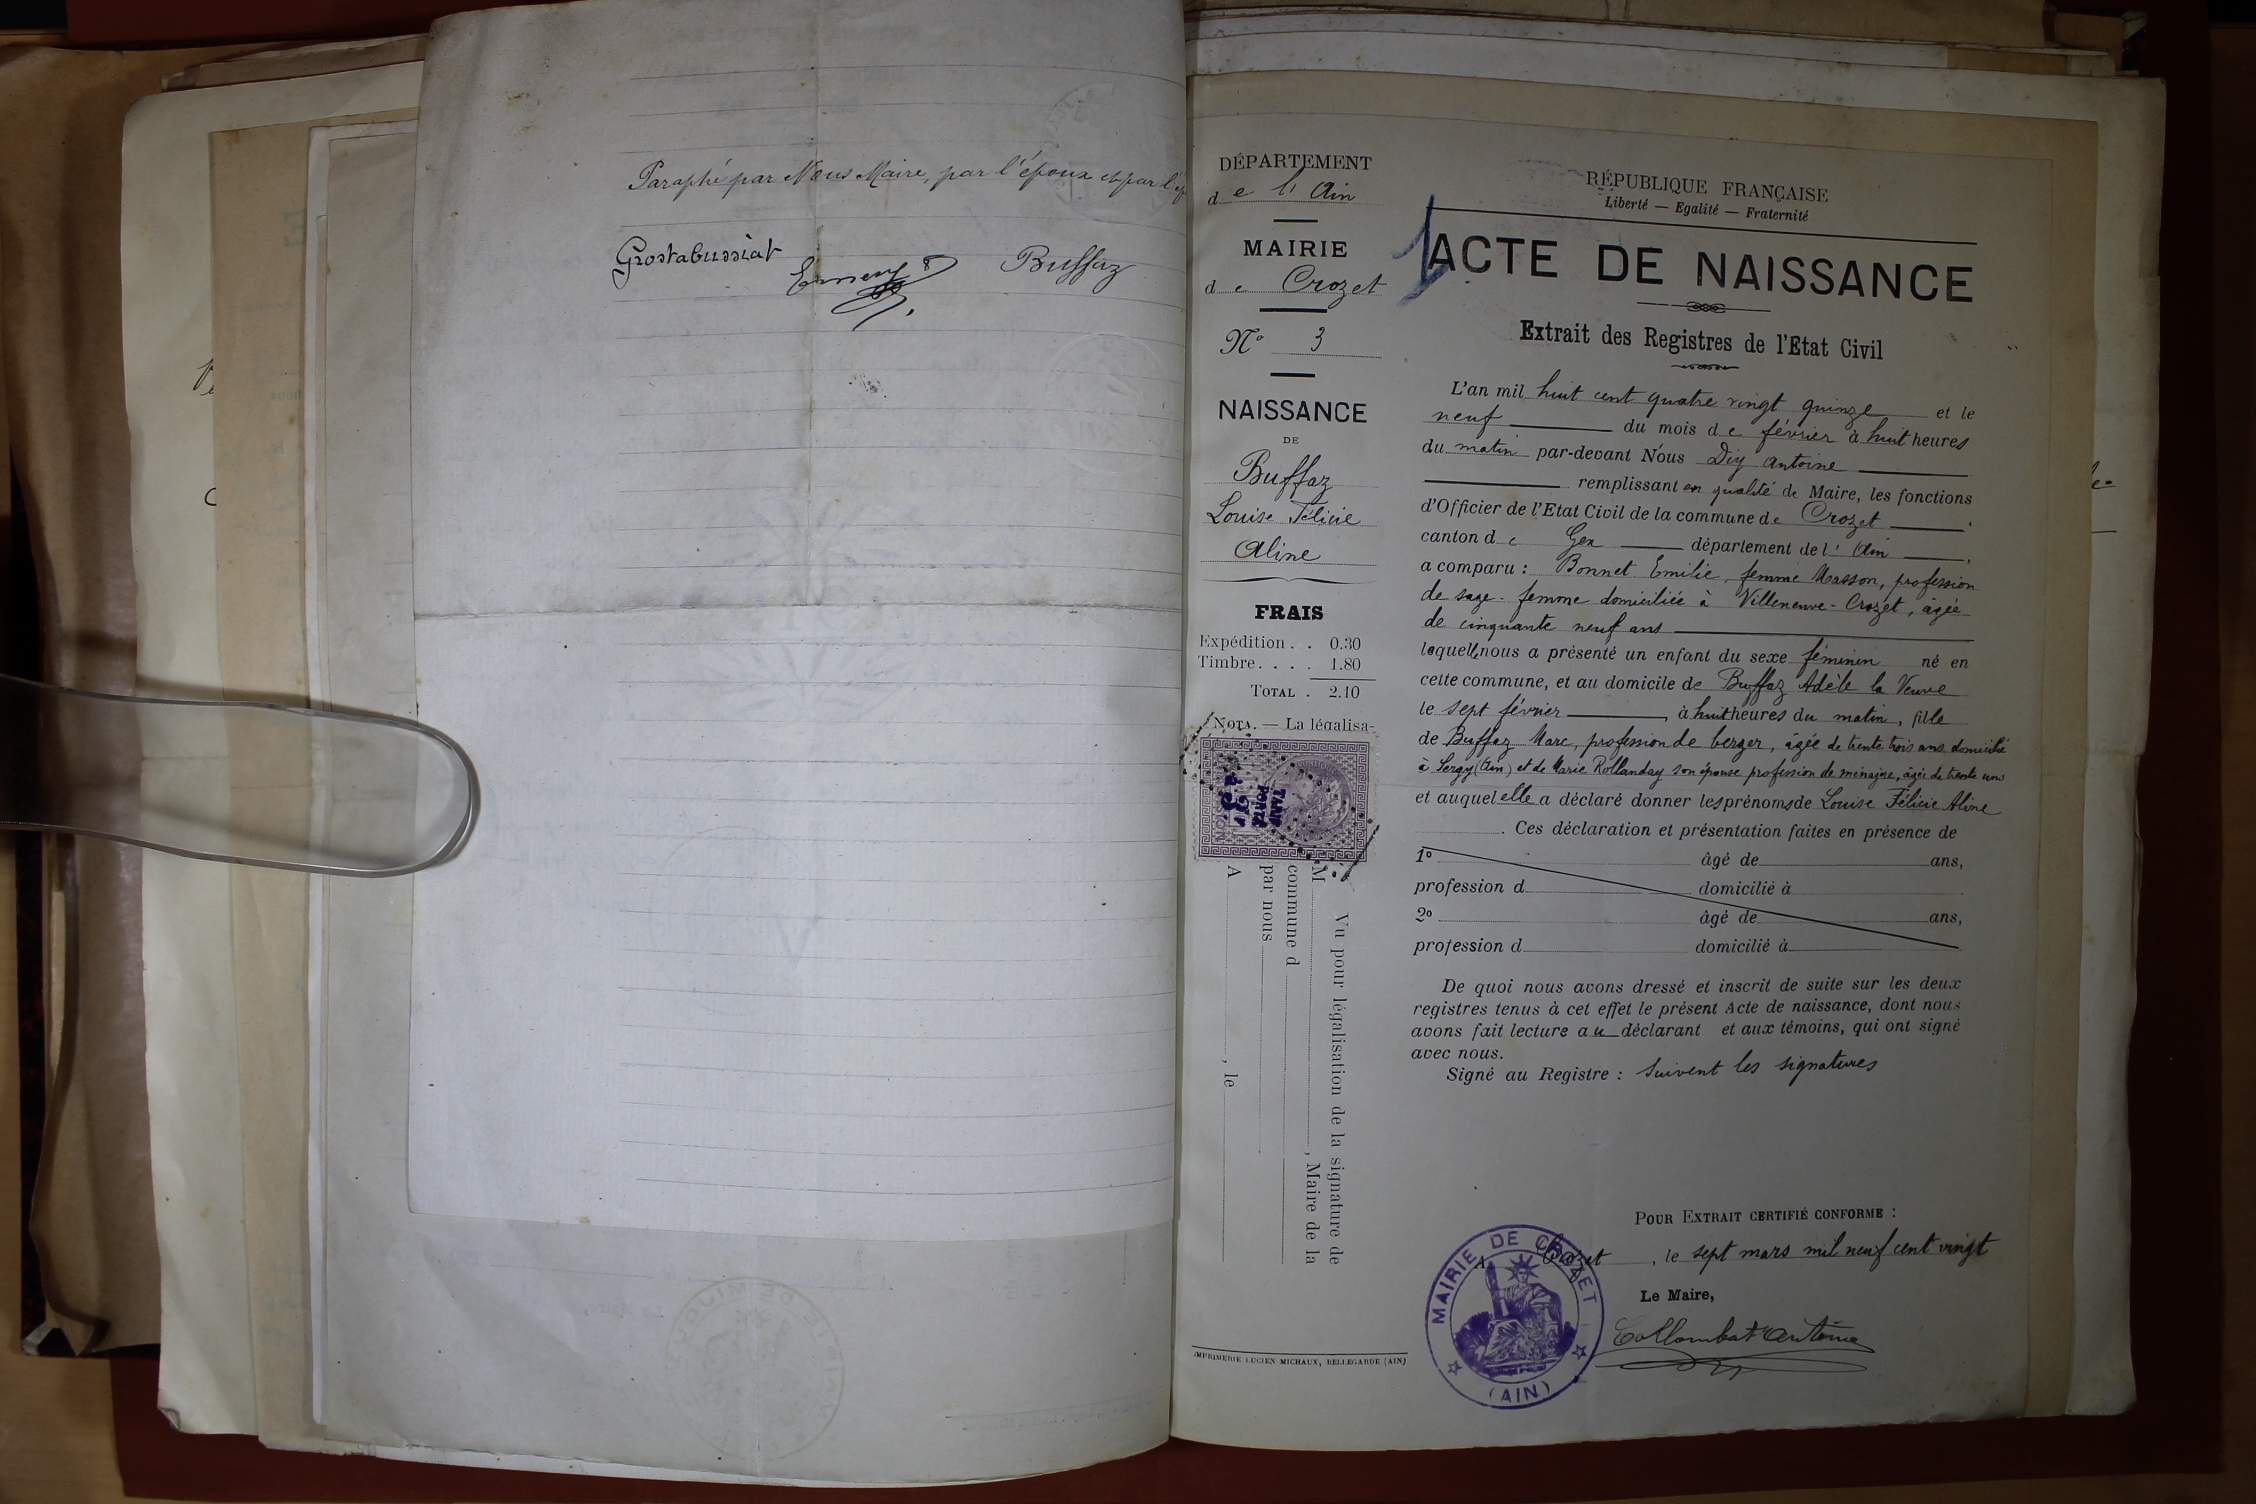 Paraphé par Nous Maire, par l'époux et par l'ép
Grostabussiat
Buffaz
DÉPARTEMENT
de l'Ain
MAIRIE
de Crozet
N° 3
NAISSANCE
DE
Buffaz
Louise Félicie
Aline
FRAIS
Expédition . . 0.30
Timbre. . . . 1.80
TOTAL . 2.10
NOTA. — La légalisa-
TARIF
PORTÉ
Vu pour légalisation de la signature de
M , Maire de la
commune d
par nous
A , le
IMPRIMERIE LUCIEN MICHAUX, BELLEGARDE (AIN)
RÉPUBLIQUE FRANÇAISE
Liberté — Egalité — Fraternité
ACTE DE NAISSANCE
Extrait des Registres de l'Etat Civil
L'an mil huit cent quatre vingt quinze et le
neuf du mois de février à huit heures
du matin par-devant Nous Diy Antoine
remplissant en qualité de Maire, les fonctions
d'Officier de l'Etat Civil de la commune de Crozet
canton de Gex département de l'Ain
a comparu : Bonnet Emilie, femme Masson, profession
de sage-femme domiciliée à Villeneuve-Crozet, âgée
de cinquante neuf ans
laquelle nous a présenté un enfant du sexe féminin né en
cette commune, et au domicile de Buffaz Adèle la Veuve
le sept février à huit heures du matin, fille
de Buffaz Marc, profession de berger, âgée de trente trois ans domicilié
à Sergy (Ain) et de Marie Rollanday son épouse profession de ménagère, âgée de trente uns
et auquel elle a déclaré donner les prénoms de Louise Félicie Aline
. Ces déclaration et présentation faites en présence de
1° âgé de ans,
profession d domicilié à
2° âgé de ans,
profession d domicilié à
De quoi nous avons dressé et inscrit de suite sur les deux
registres tenus à cet effet le présent Acte de naissance, dont nous
avons fait lecture au déclarant et aux témoins, qui ont signé
avec nous.
Signé au Registre : Suivent les signatures
POUR EXTRAIT CERTIFIÉ CONFORME :
A Crozet, le sept mars mil neuf cent vingt
Le Maire,
Collombat Antoine
MAIRIE DE CROZET
(AIN)